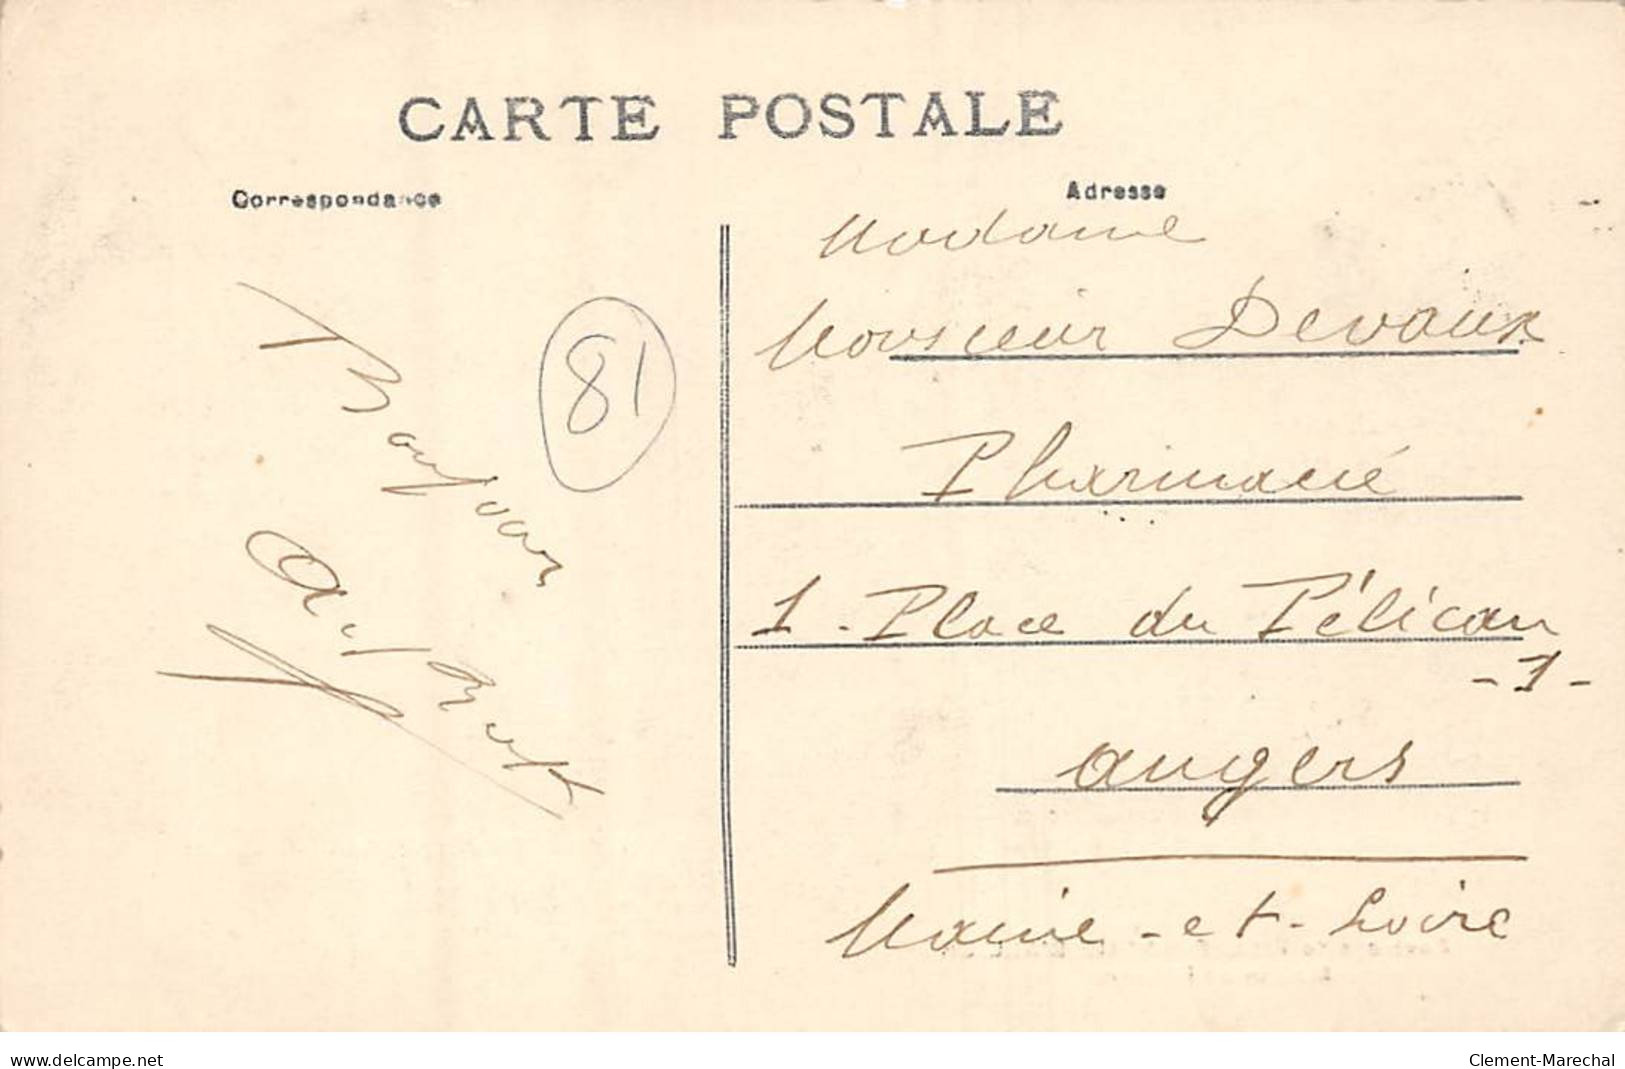 CARTE POSTALE
Correspondance
Adresse
Bonjour
81
Madame
Monsieur Devaux
Pharmacié
1 - Place du Pélican
- 1 -
Angers
Maine - et - Loire
www.delcampe.net
Clement-Marechal